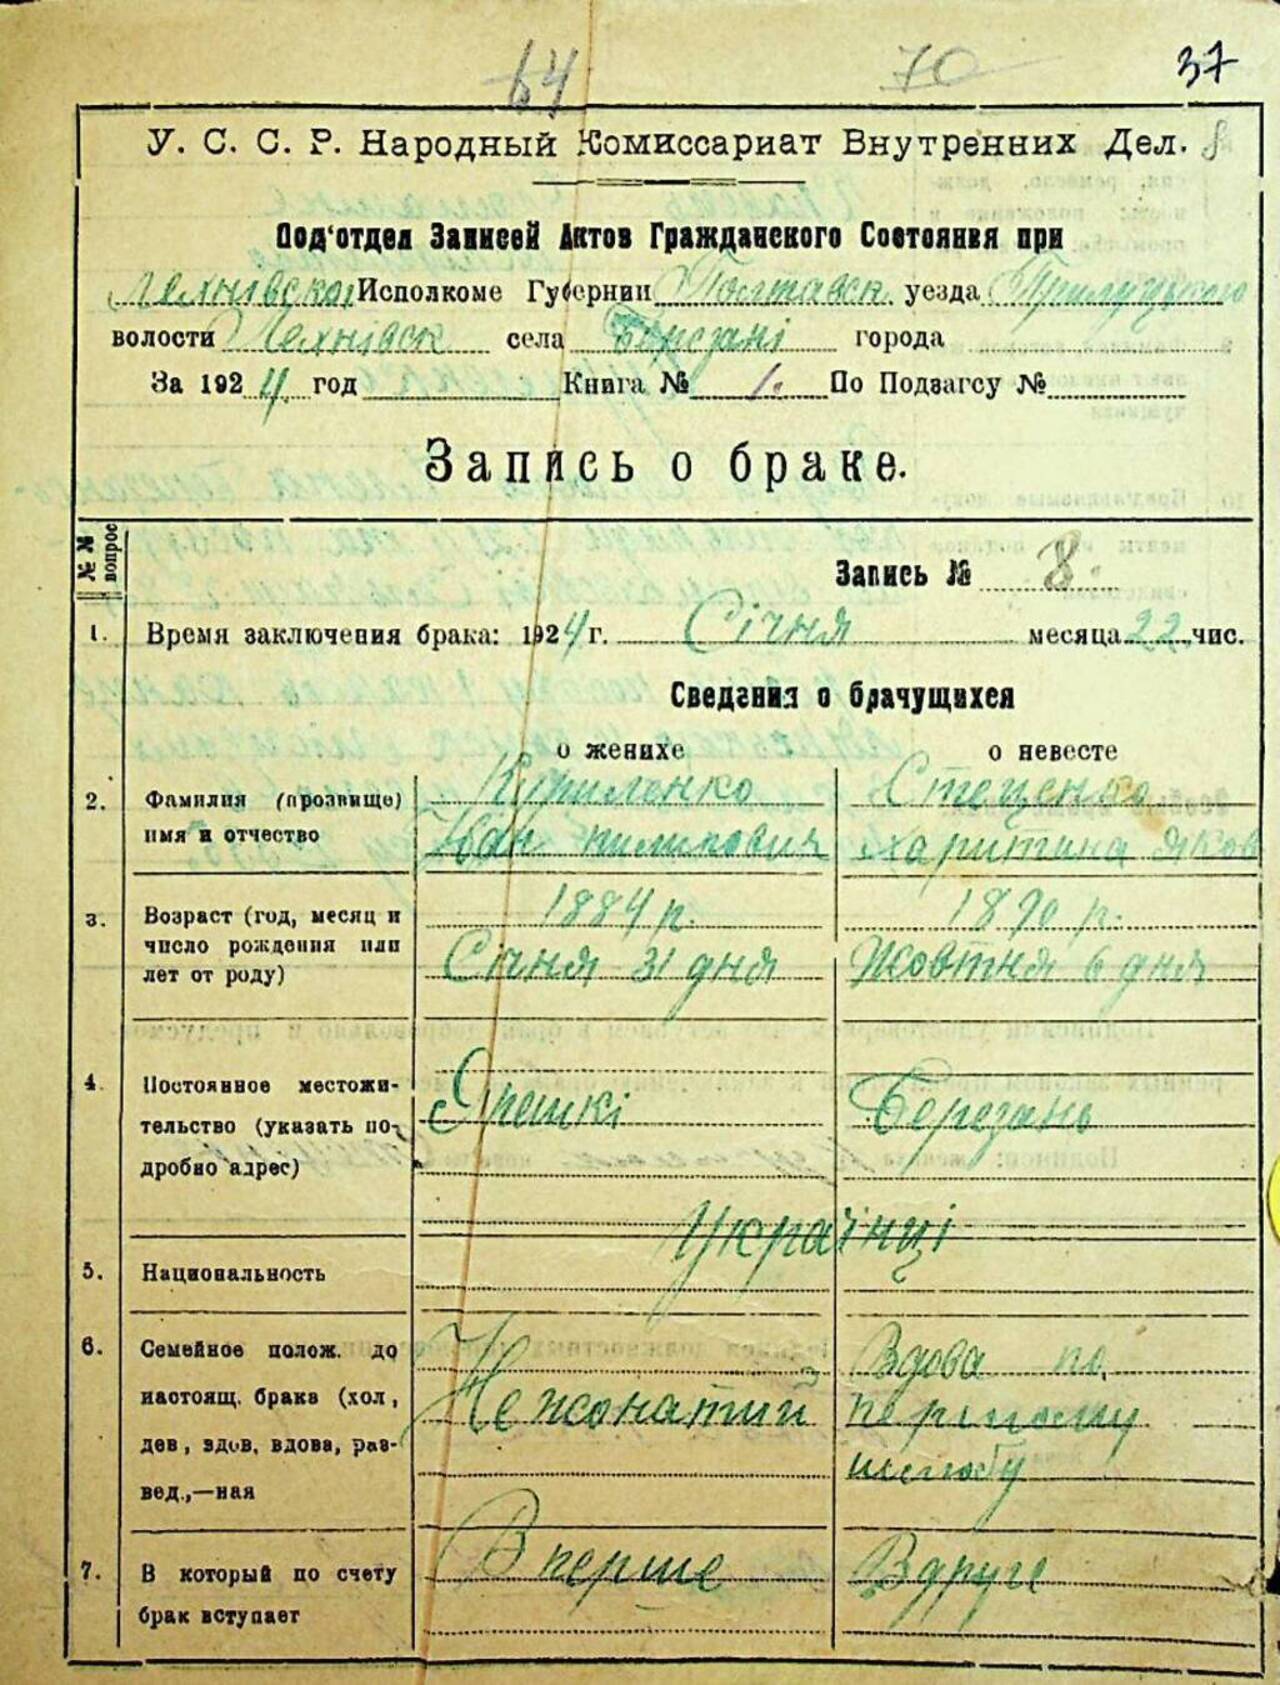 64 70 37
У. С. С. Р. Народный Комиссариат Внутренних Дел. 8
Под'отдел Записей Актов Гражданского Состояния при
Лехнівском Исполкоме Губернии Полтавск. уезда Прилуцького
волости Лехнівск села Березані города
За 1924 год Книга № 1. По Подзагсу №
Запись о браке.
№№ вопрос
Запись № 8.
1. Время заключения брака: 1924 г. Січня месяца 22 чис.
Сведения о брачущихся
о женихе о невесте
2. Фамилия (прозвище) Куриленко Стеценко
имя и отчество Іван Пилипович Харитина Яков
3. Возраст (год, месяц и 1884 р. 1890 р.
число рождения или Січня 31 дня Жовтня 6 дня
лет от роду)
4. Постоянное местожи-
тельство (указать по- Ярешкі Березань
дробно адрес)
Українці
5. Национальность
6. Семейное полож. до Вдова по
настоящ. брака (хол, Нежонатий першому
дев, вдов, вдова, раз- шлюбу
вед.,—ная
7. В который по счету Вперше Вдруге
брак вступает